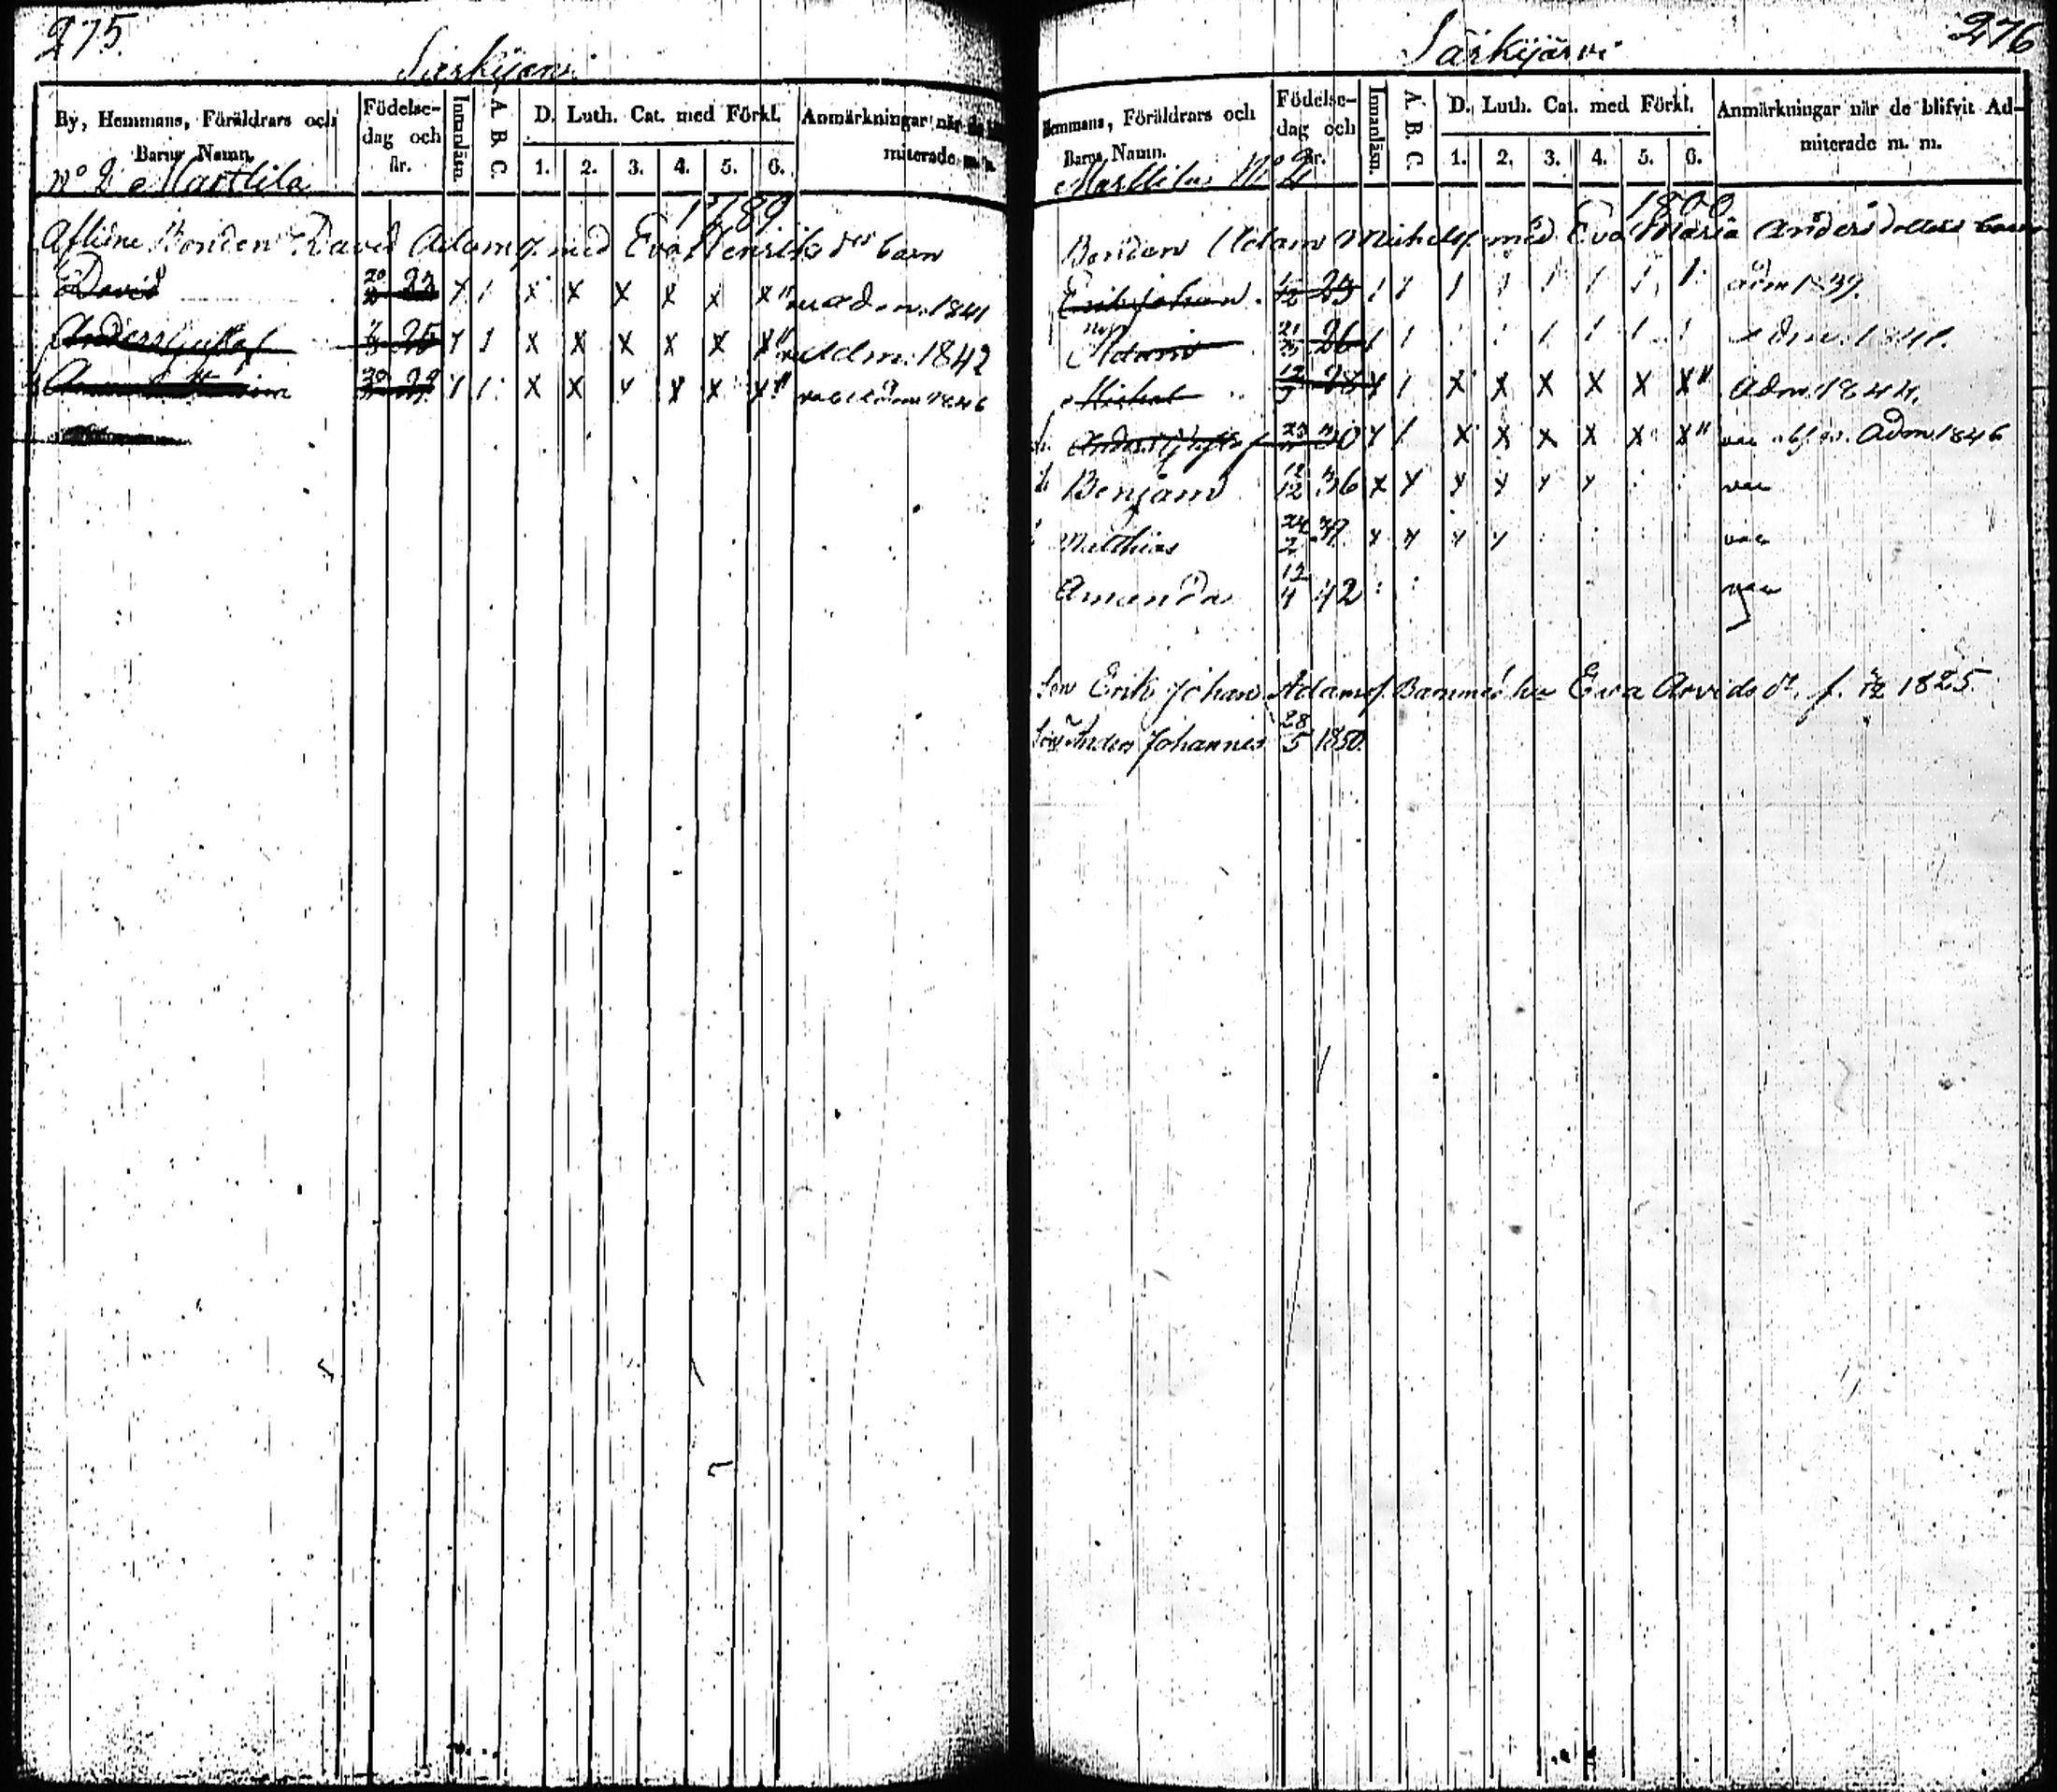 275.
Särkijärvi
By, Hemmans, Föräldrars och Barns Namn.
Födelse-dag och år.
Innanläsn.
A. B. C.
D. Luth. Cat. med Förkl.
1. 2. 3. 4. 5. 6.
Anmärkningar när de
miterade m. m.
No 2 Marttila
1789
Aflidne Bonden David Adamss. med Eva Henriksdrs barn
David 23 x 1 x x x x x x adm. 1841
Anders Gustaf 25 x 1 x x x x x x Adm. 1842
Anna x 1 x x x x x x Adm 1846
276
Särkijärvi
Hemmans, Föräldrars och Barns Namn.
Födelse-dag och år.
Innanläsn.
A. B. C.
D. Luth. Cat. med Förkl.
1. 2. 3. 4. 5. 6.
Anmärkningar när de blifvit Ad-
miterade m. m.
Marttila No 2
1800
Bonden Adam Michelss. med Eva Maria Anders dotters barn
Erik Johan 1 1 1 1 1 1 1 1 adm 1839.
Adam 21/3 26 1 1 1 1 1 1 adm. 1841.
Michel 28 x 1 x x x x x x Adm. 1844.
Anders Gustaf 30 x 1 x x x x x x Adm 1846
Benjam 12/12 36 x x x x x x
Matthias 24/2 39 x x x x
Amanda 12/4 42
Son Erik Johan Adamss. Barn med hu Eva Arvidsdr. f. 1825
Son Anders Johannes 28/5 1850.